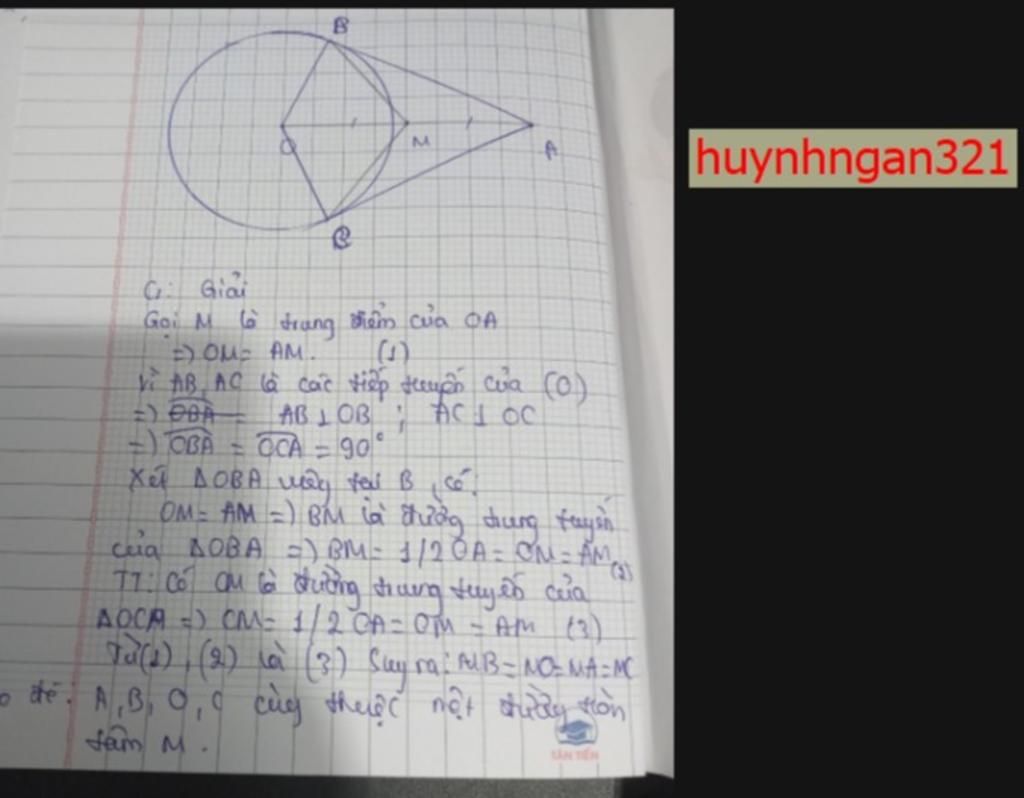 B
O
M
A
C
huynhngan321
G: Giải
Gọi M là trung điểm của OA
=) OM = AM. (1)
Vì AB, AC là các tiếp tuyến của (O)
=) OBA = AB ⊥ OB ; AC ⊥ OC
=) OBA = OCA = 90°
Xét ΔOBA vuông tại B, có:
OM = AM =) BM là đường trung tuyến
của ΔOBA =) BM = 1/2 OA = OM = AM (2)
TT: Có CM là đường trung tuyến của
ΔOCA =) CM = 1/2 OA = OM = AM (3)
Từ (1), (2) và (3) Suy ra: MB = MO = MA = MC
Do đó: A, B, O, C cùng thuộc một đường tròn
tâm M.
TÂN TIẾN